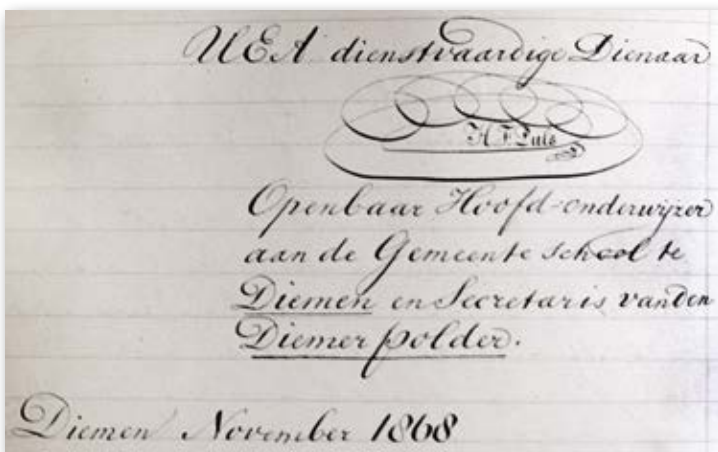 UEA dienstvaardige Dienaar
H. F. Puls
Openbaar Hoofd-onderwijzer
aan de Gemeente school te
Diemen en Secretaris van den
Diemer polder.
Diemen November 1868